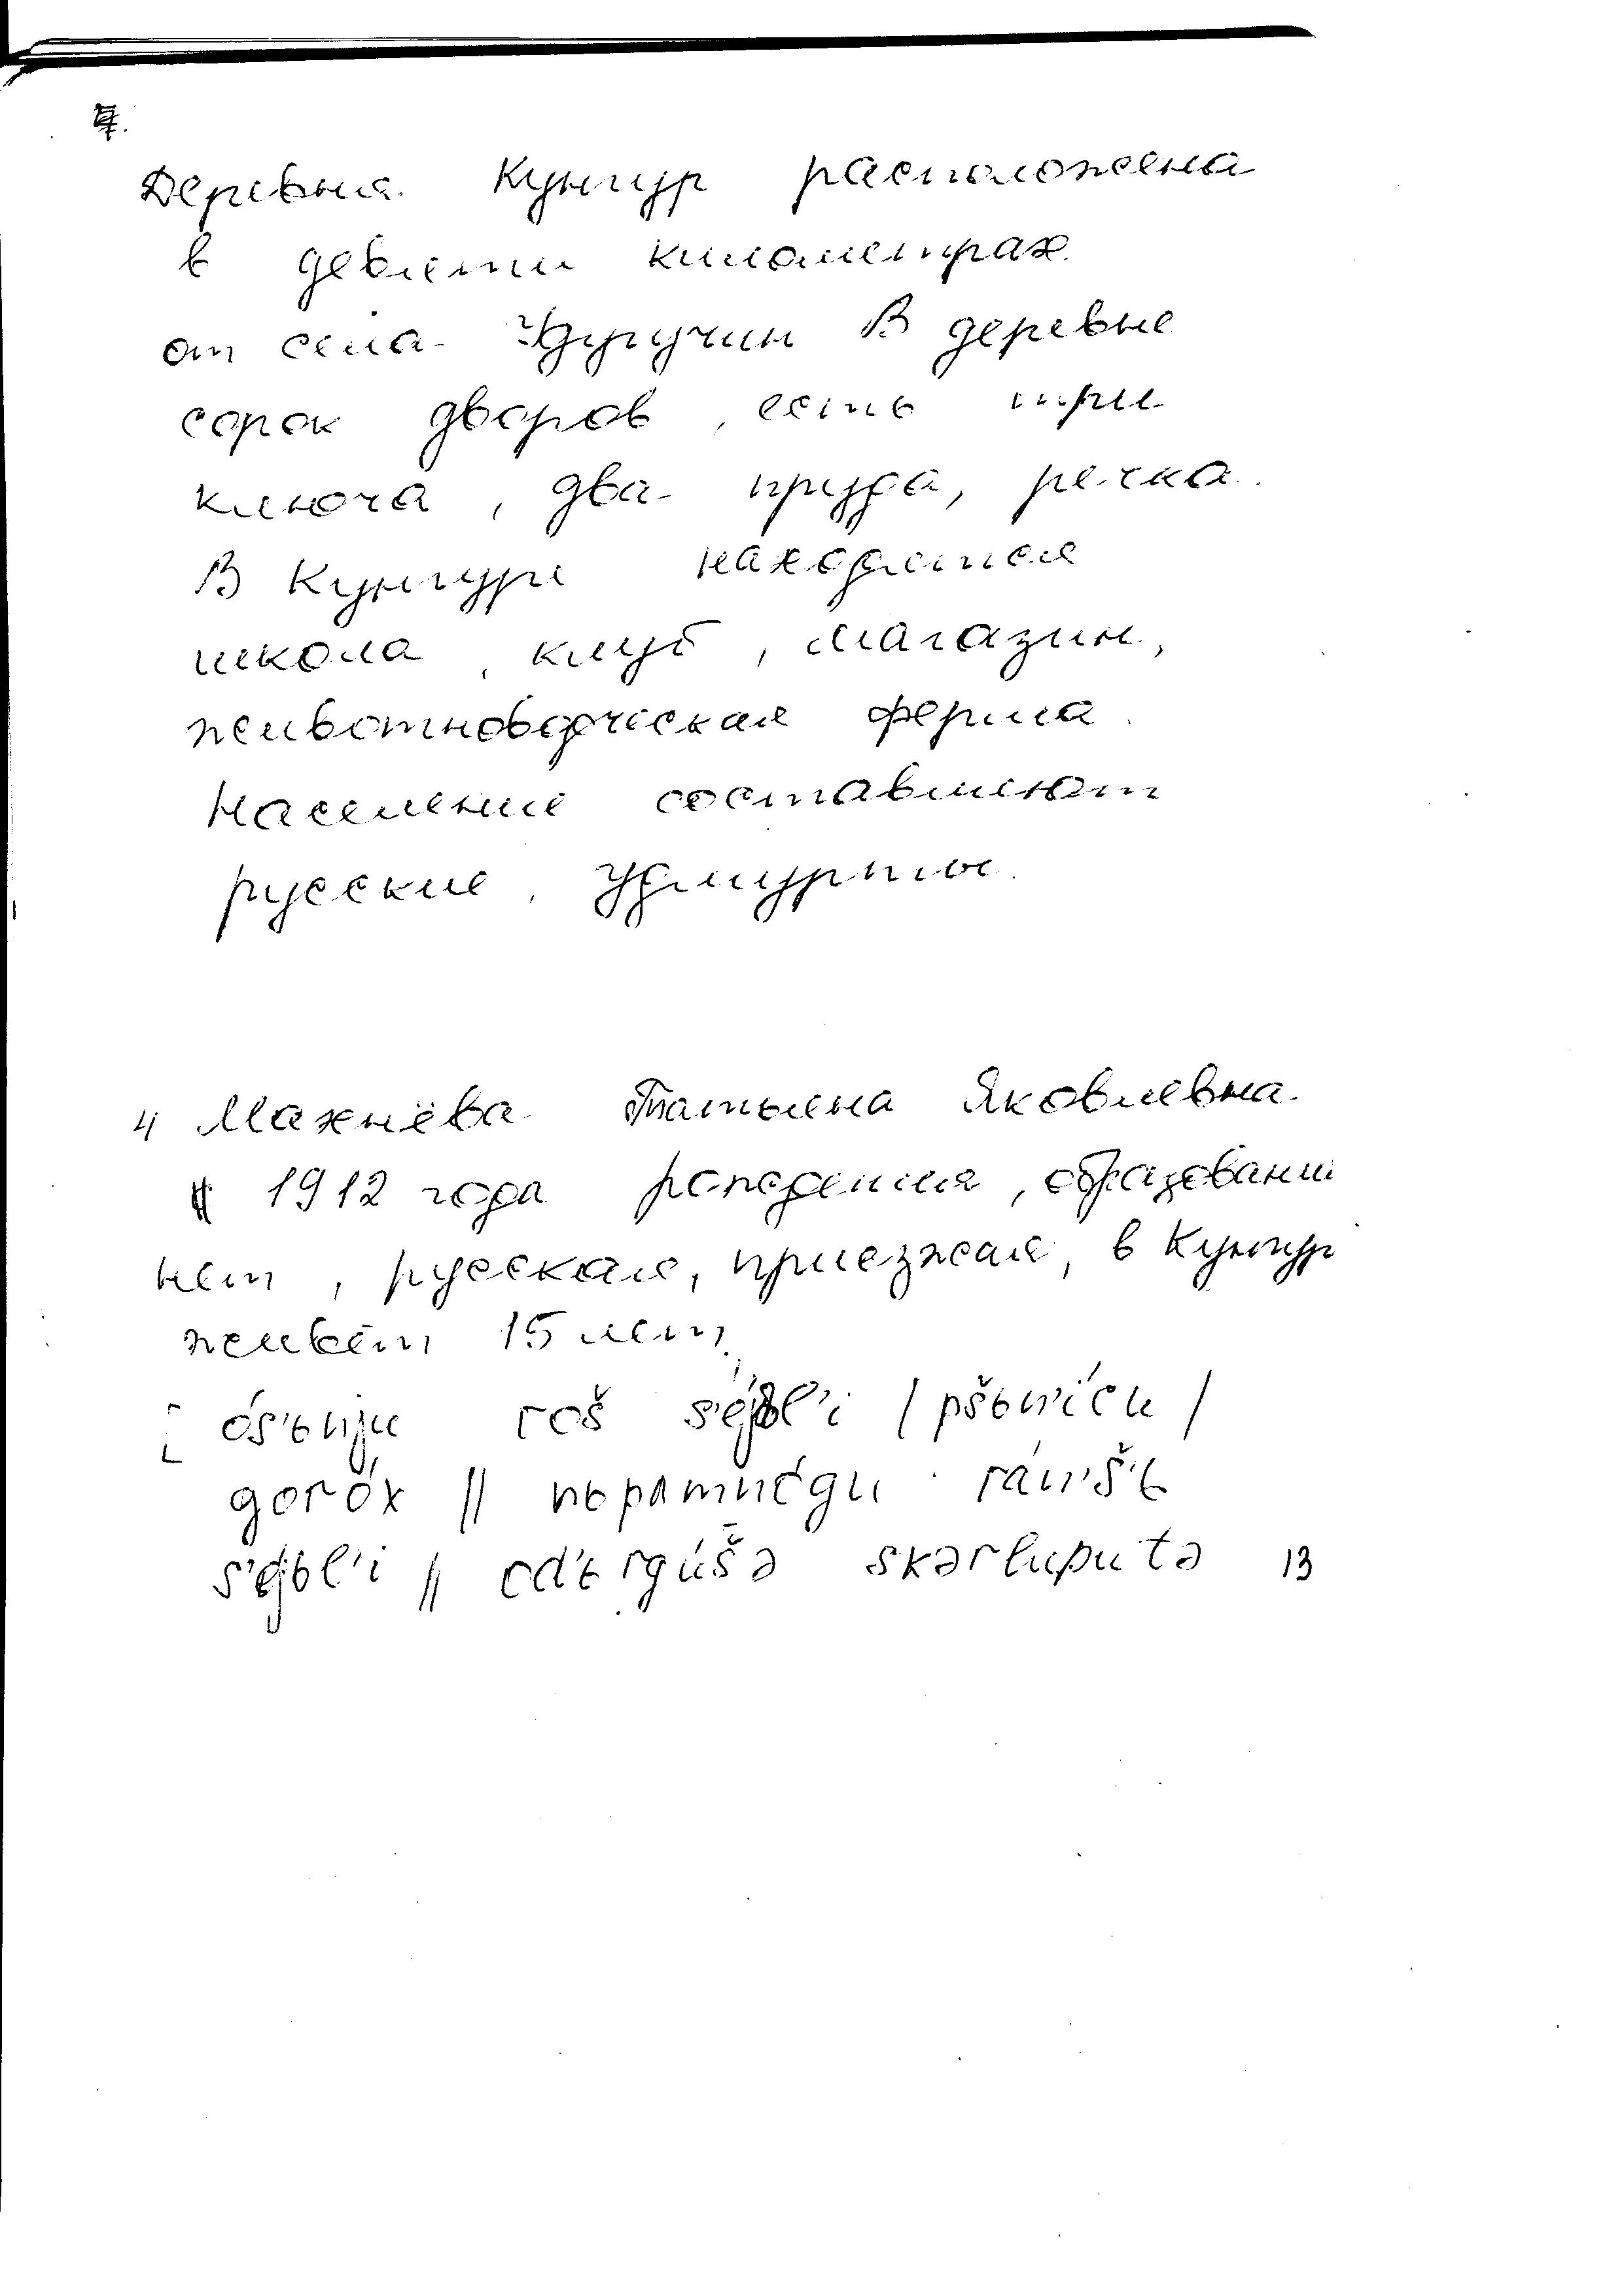 Деревня Кунгур расположена
в девяти километрах
от села Уртучин В деревне
сорок дворов, есть три
ключа, два пруда, речка.
В Кунгуре находятся
школа, клуб, магазин,
животноводческая ферма.
Население составляют
русские, удмурты.
4 Махнёва Татьяна Яковлевна
1912 года рождения, образования
нет, русская, приезжая, в Кунгур
живёт 15 лет.
[ós'ɛn'ju roš s'éjɛl'i / pšɛn'ícu /
goróx // nɛpamn'égu rán'š'ɛ
s'éjɛl'i // od'ɛrgúšə skərlupu tə 13